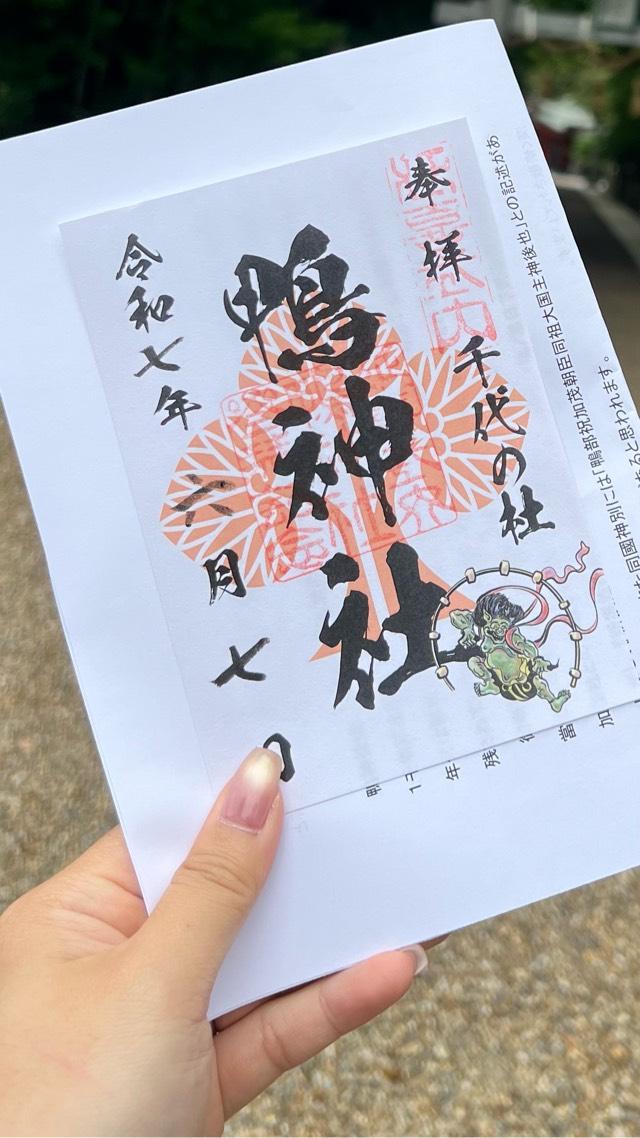 奉拝
千代の杜
鴨神社
令和七年
六月七日
同國神別には「鴨部祝加茂朝臣同祖大国主神後也」との記述があ
あると思われます。